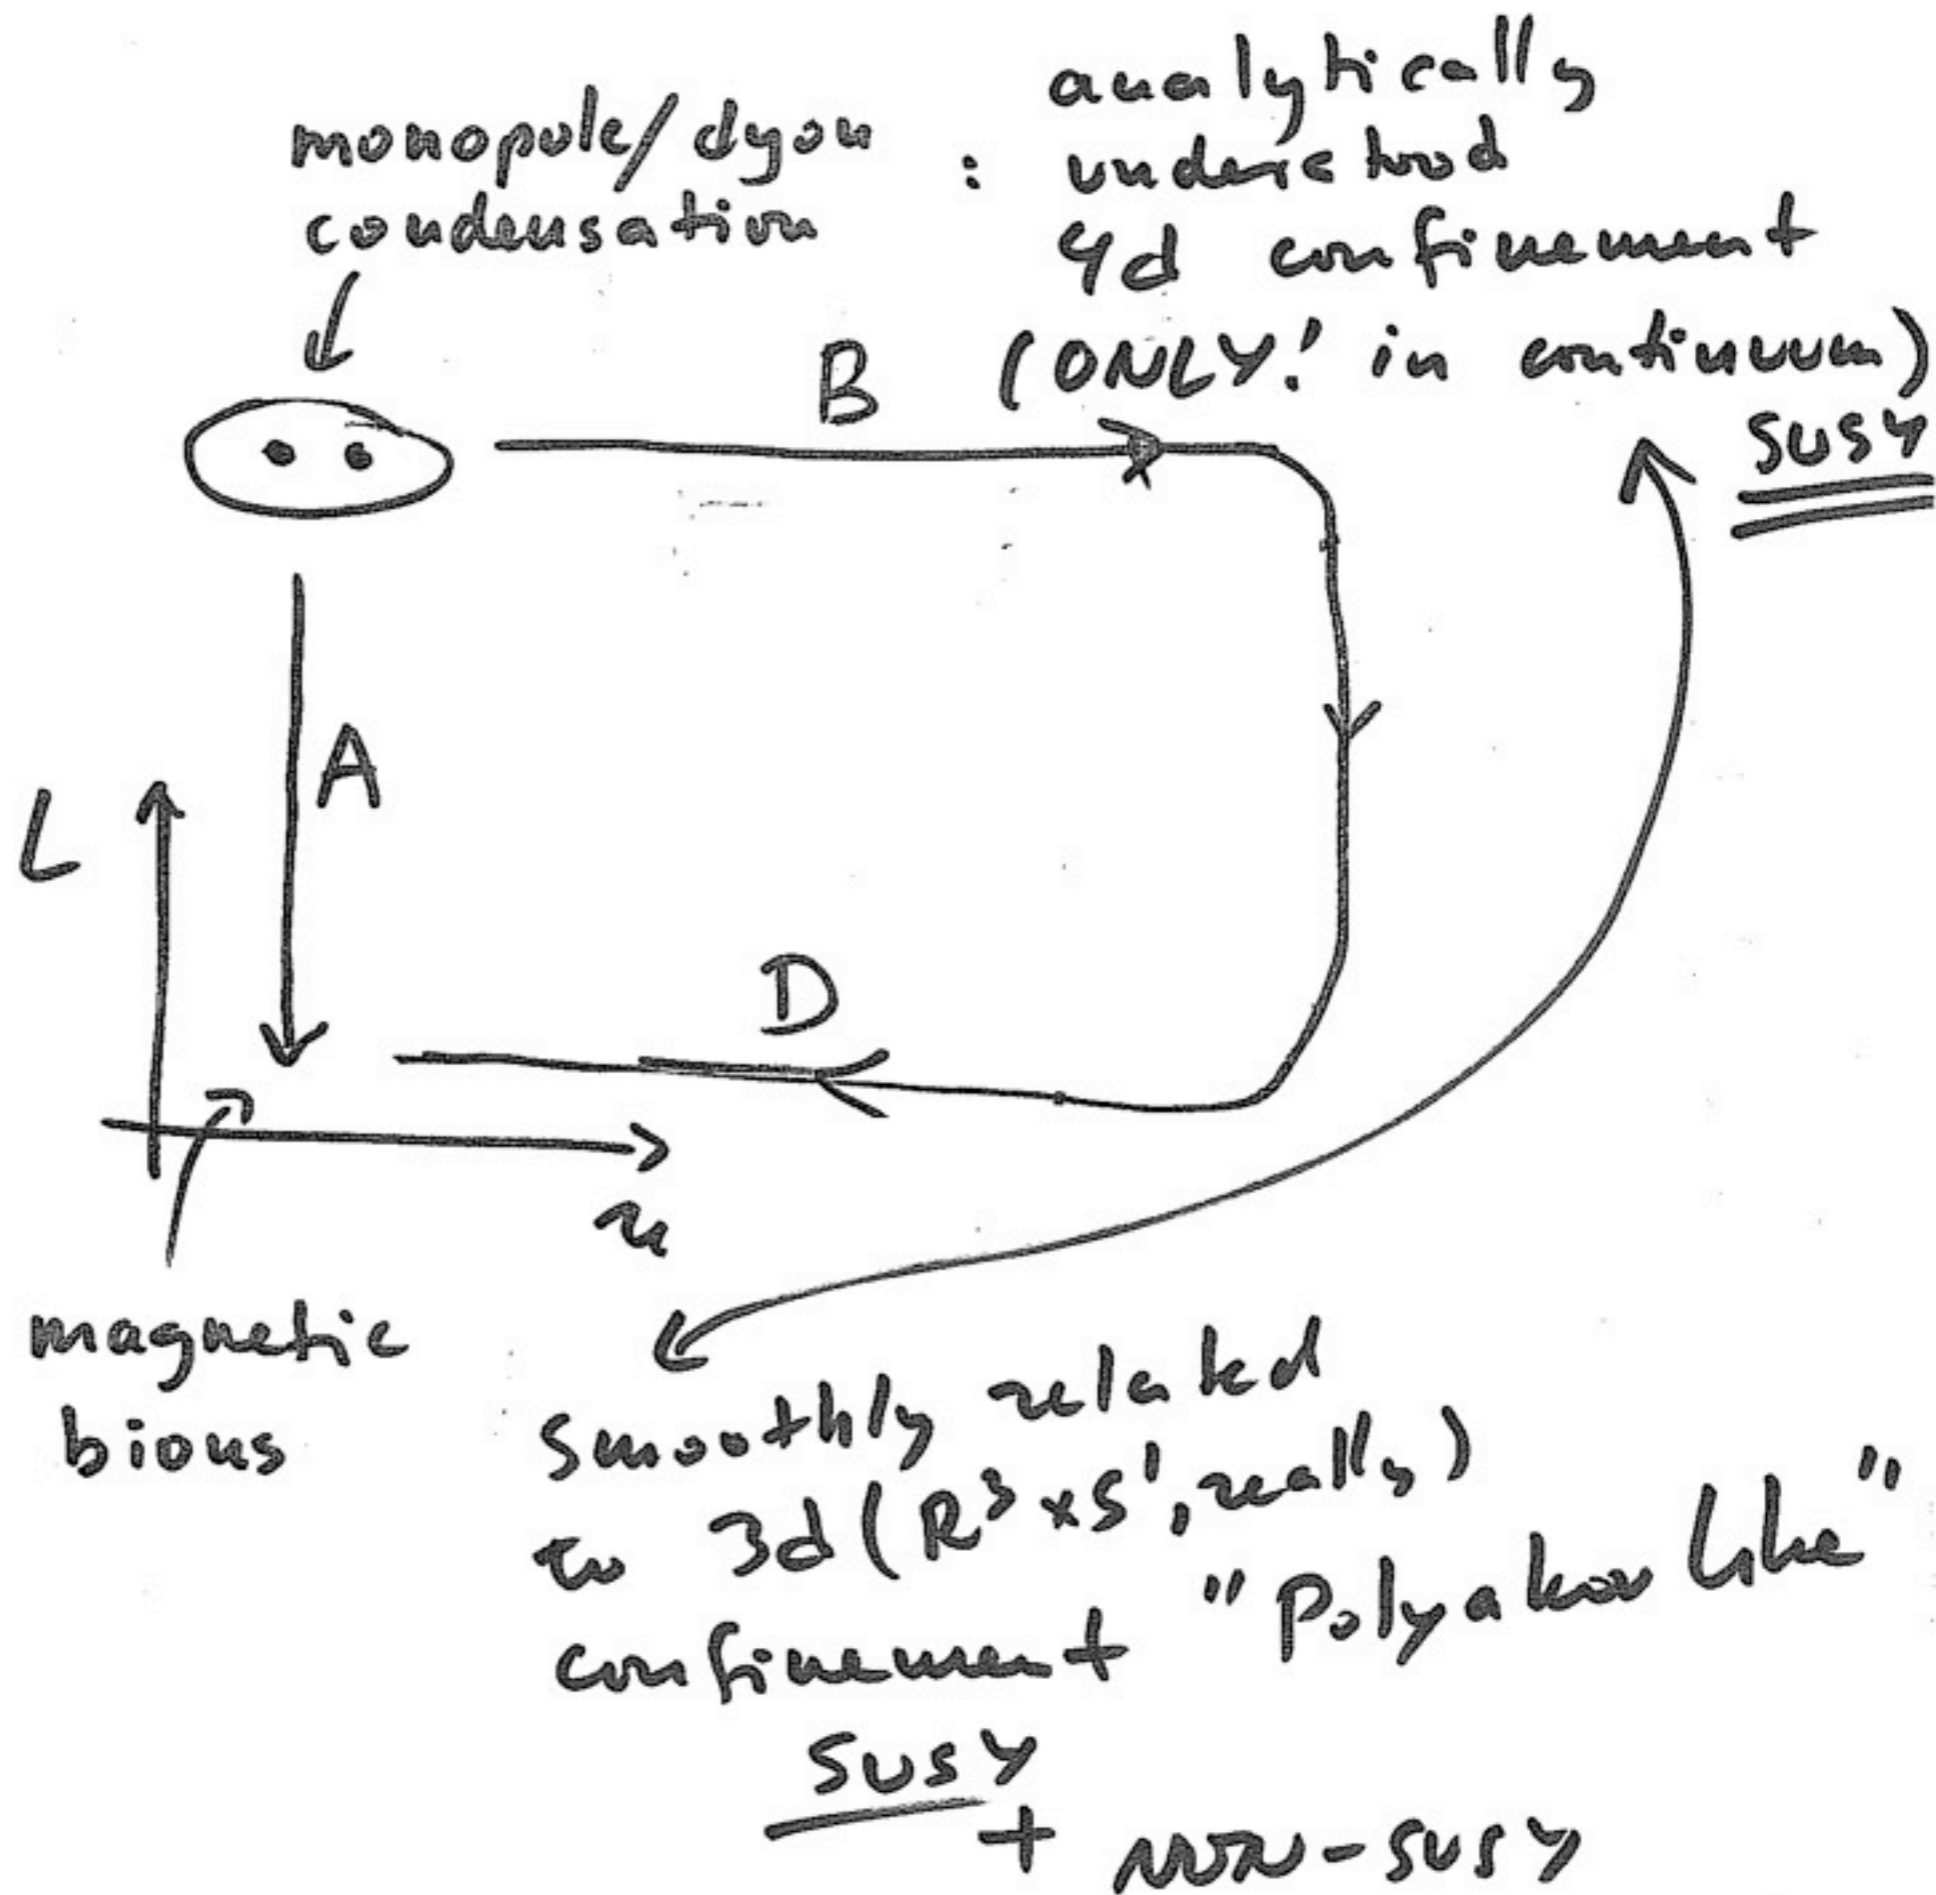 monopole/dyon
condensation
:
analytically
understood
4d confinement
(ONLY! in continuum)
SUSY
B
A
L
D
u
magnetic
bions
smoothly related
to 3d (R³ x S¹, really)
confinement "Polyakov like"
SUSY
+ NON-SUSY